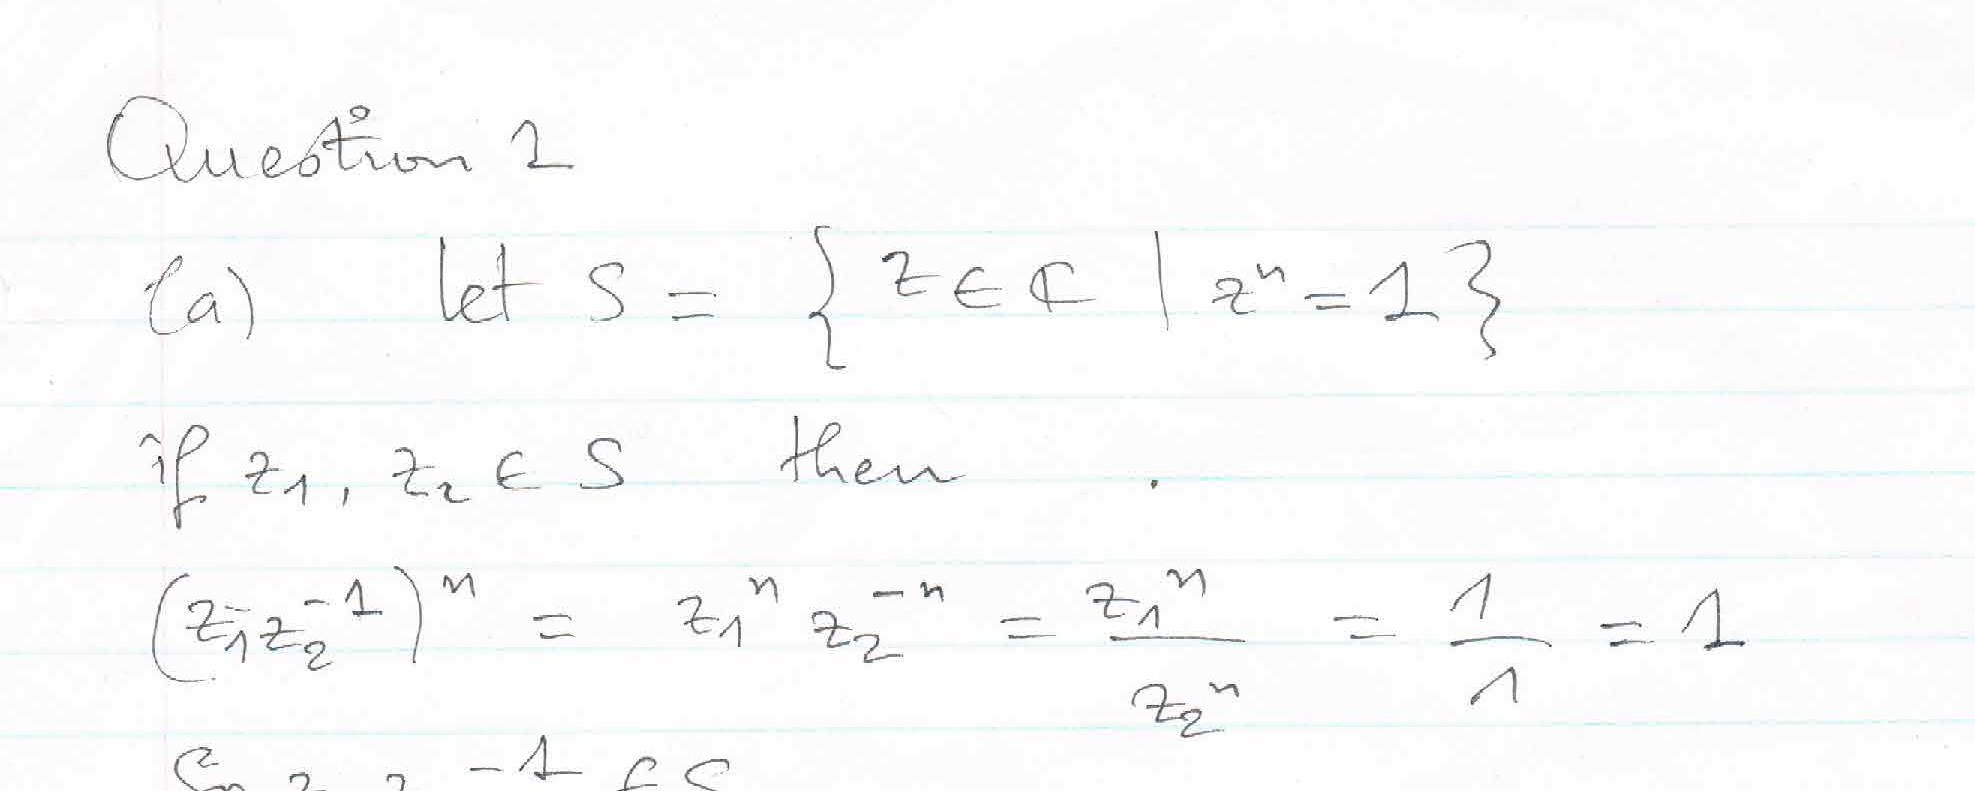 Question 1
(a) let S = { z ∈ ℂ | zⁿ = 1 }
if z₁, z₂ ∈ S then .
(z₁z₂⁻¹)ⁿ = z₁ⁿ z₂⁻ⁿ = z₁ⁿ / z₂ⁿ = 1/1 = 1
So z₁ z₂⁻¹ ∈ S